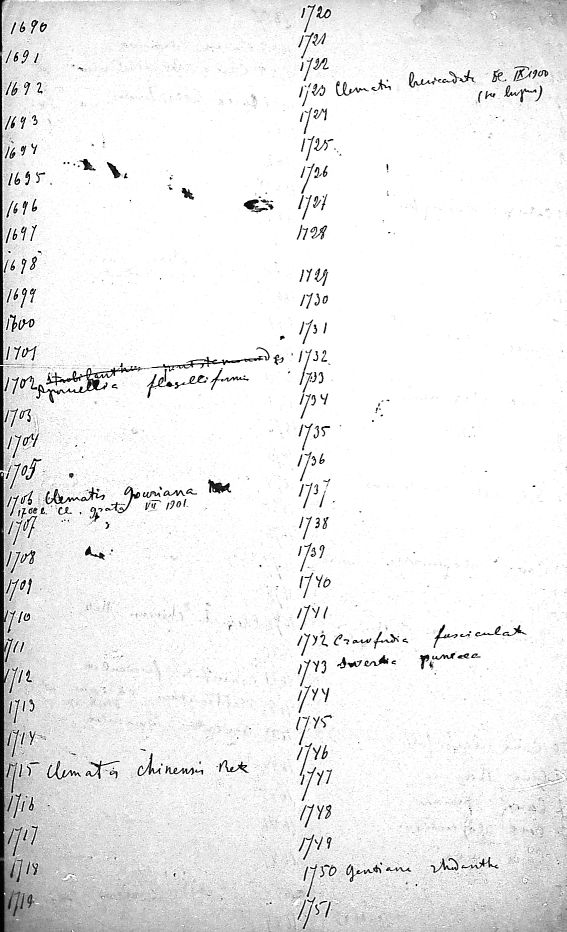 1690
1691
1692
1693
1694
1695
1696
1697
1698
1699
1600
1701
1702 Strobilanthus
flagelliformis
1703
1704
1705
1706 Clematis gouriana
1706 a Cl. grata VII 1901
1707
1708
1709
1710
1711
1712
1713
1714
1715 Clematis chinensis Retz
1716
1717
1718
1719
1720
1721
1722
1723 Clematis brevicaudata DC IX 1900
1724
1725
1726
1727
1728
1729
1730
1731
1732
1733
1734
1735
1736
1737
1738
1739
1740
1741
1742 Crawfurdia fasciculata
1743 Swertia punicea
1744
1745
1746
1747
1748
1749
1750 Gentiana rhodantha
1751